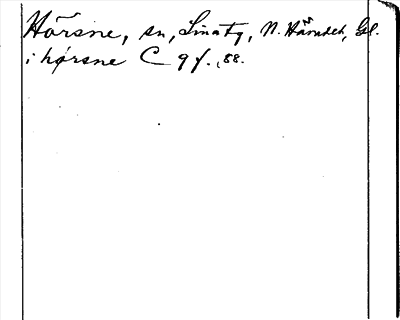 Hörsne, sn, Lina tg, N. Häradet, Gtl.
i hørsne C 9 f. , 88.